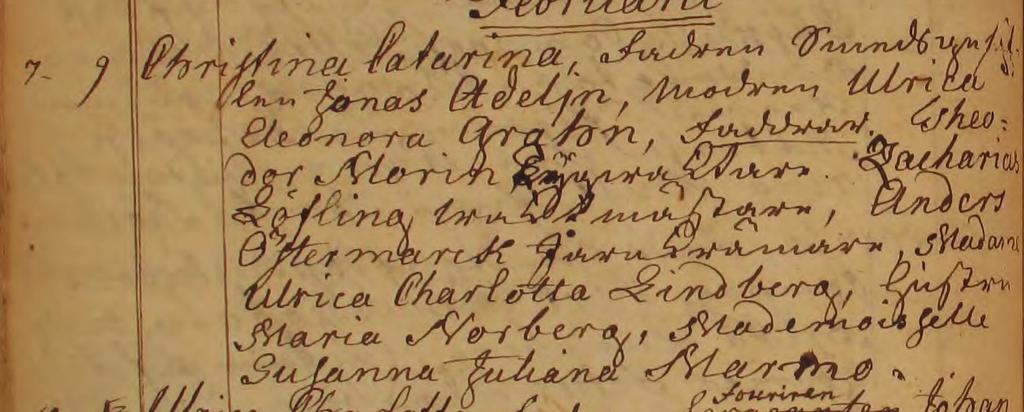 Februarii
7. 9 Christina Catarina, Fadren Smedsgesäl-
len Jonas Adelin, modren Ulrica
Eleonora Grahn, Faddrar. Theo-
dor Morin Zacharias
Löfling tracktmästare, Anders
Östermarck Jarnkrämare, Madame
Ulrica Charlotta Lindberg, Hustru
Maria Norberg, Mademoiselle
Susanna Juliana Marmo.
Ulrica Charlotta Johan